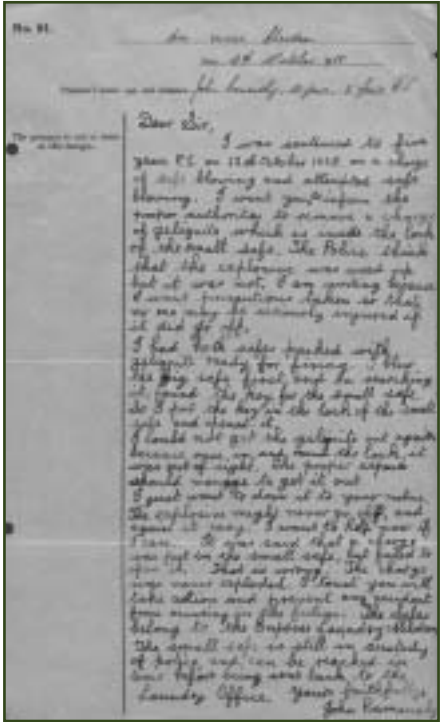 No. 21.
Dear Sir,
I was sentenced to five
years P.S. on 12th October on a charge
of safe blowing and attempted safe
blowing. I want you to inform the
proper authorities to remove a charge
of gelignite which is inside the lock
of the small safe. The Police think
that the explosive was used up
but it was not. I am writing because
I want precautions taken so that
no one may be seriously injured if
it did go off.
I had both safes packed with
gelignite ready for firing. I blew
the big safe first and on searching
it found the key for the small safe.
So I put the key in the lock of the small
safe and opened it.
I could not get the gelignite out again
because once in and round the lock, it
was out of sight. The proper
should manage to get it out.
I just want to draw it to your notice.
The explosive might never go off, and
again it may. I want to help you if
I can. It was said that a charge
was put on the small safe, but failed to
open it. That is wrong. The charge
was never exploded. I trust you will
take action and prevent any accident
from in the future. The safes
belong to the Empress Laundry
The small safe is still in custody
of police and can be in
before being sent back to the
Laundry Office. Yours faithfully,
John